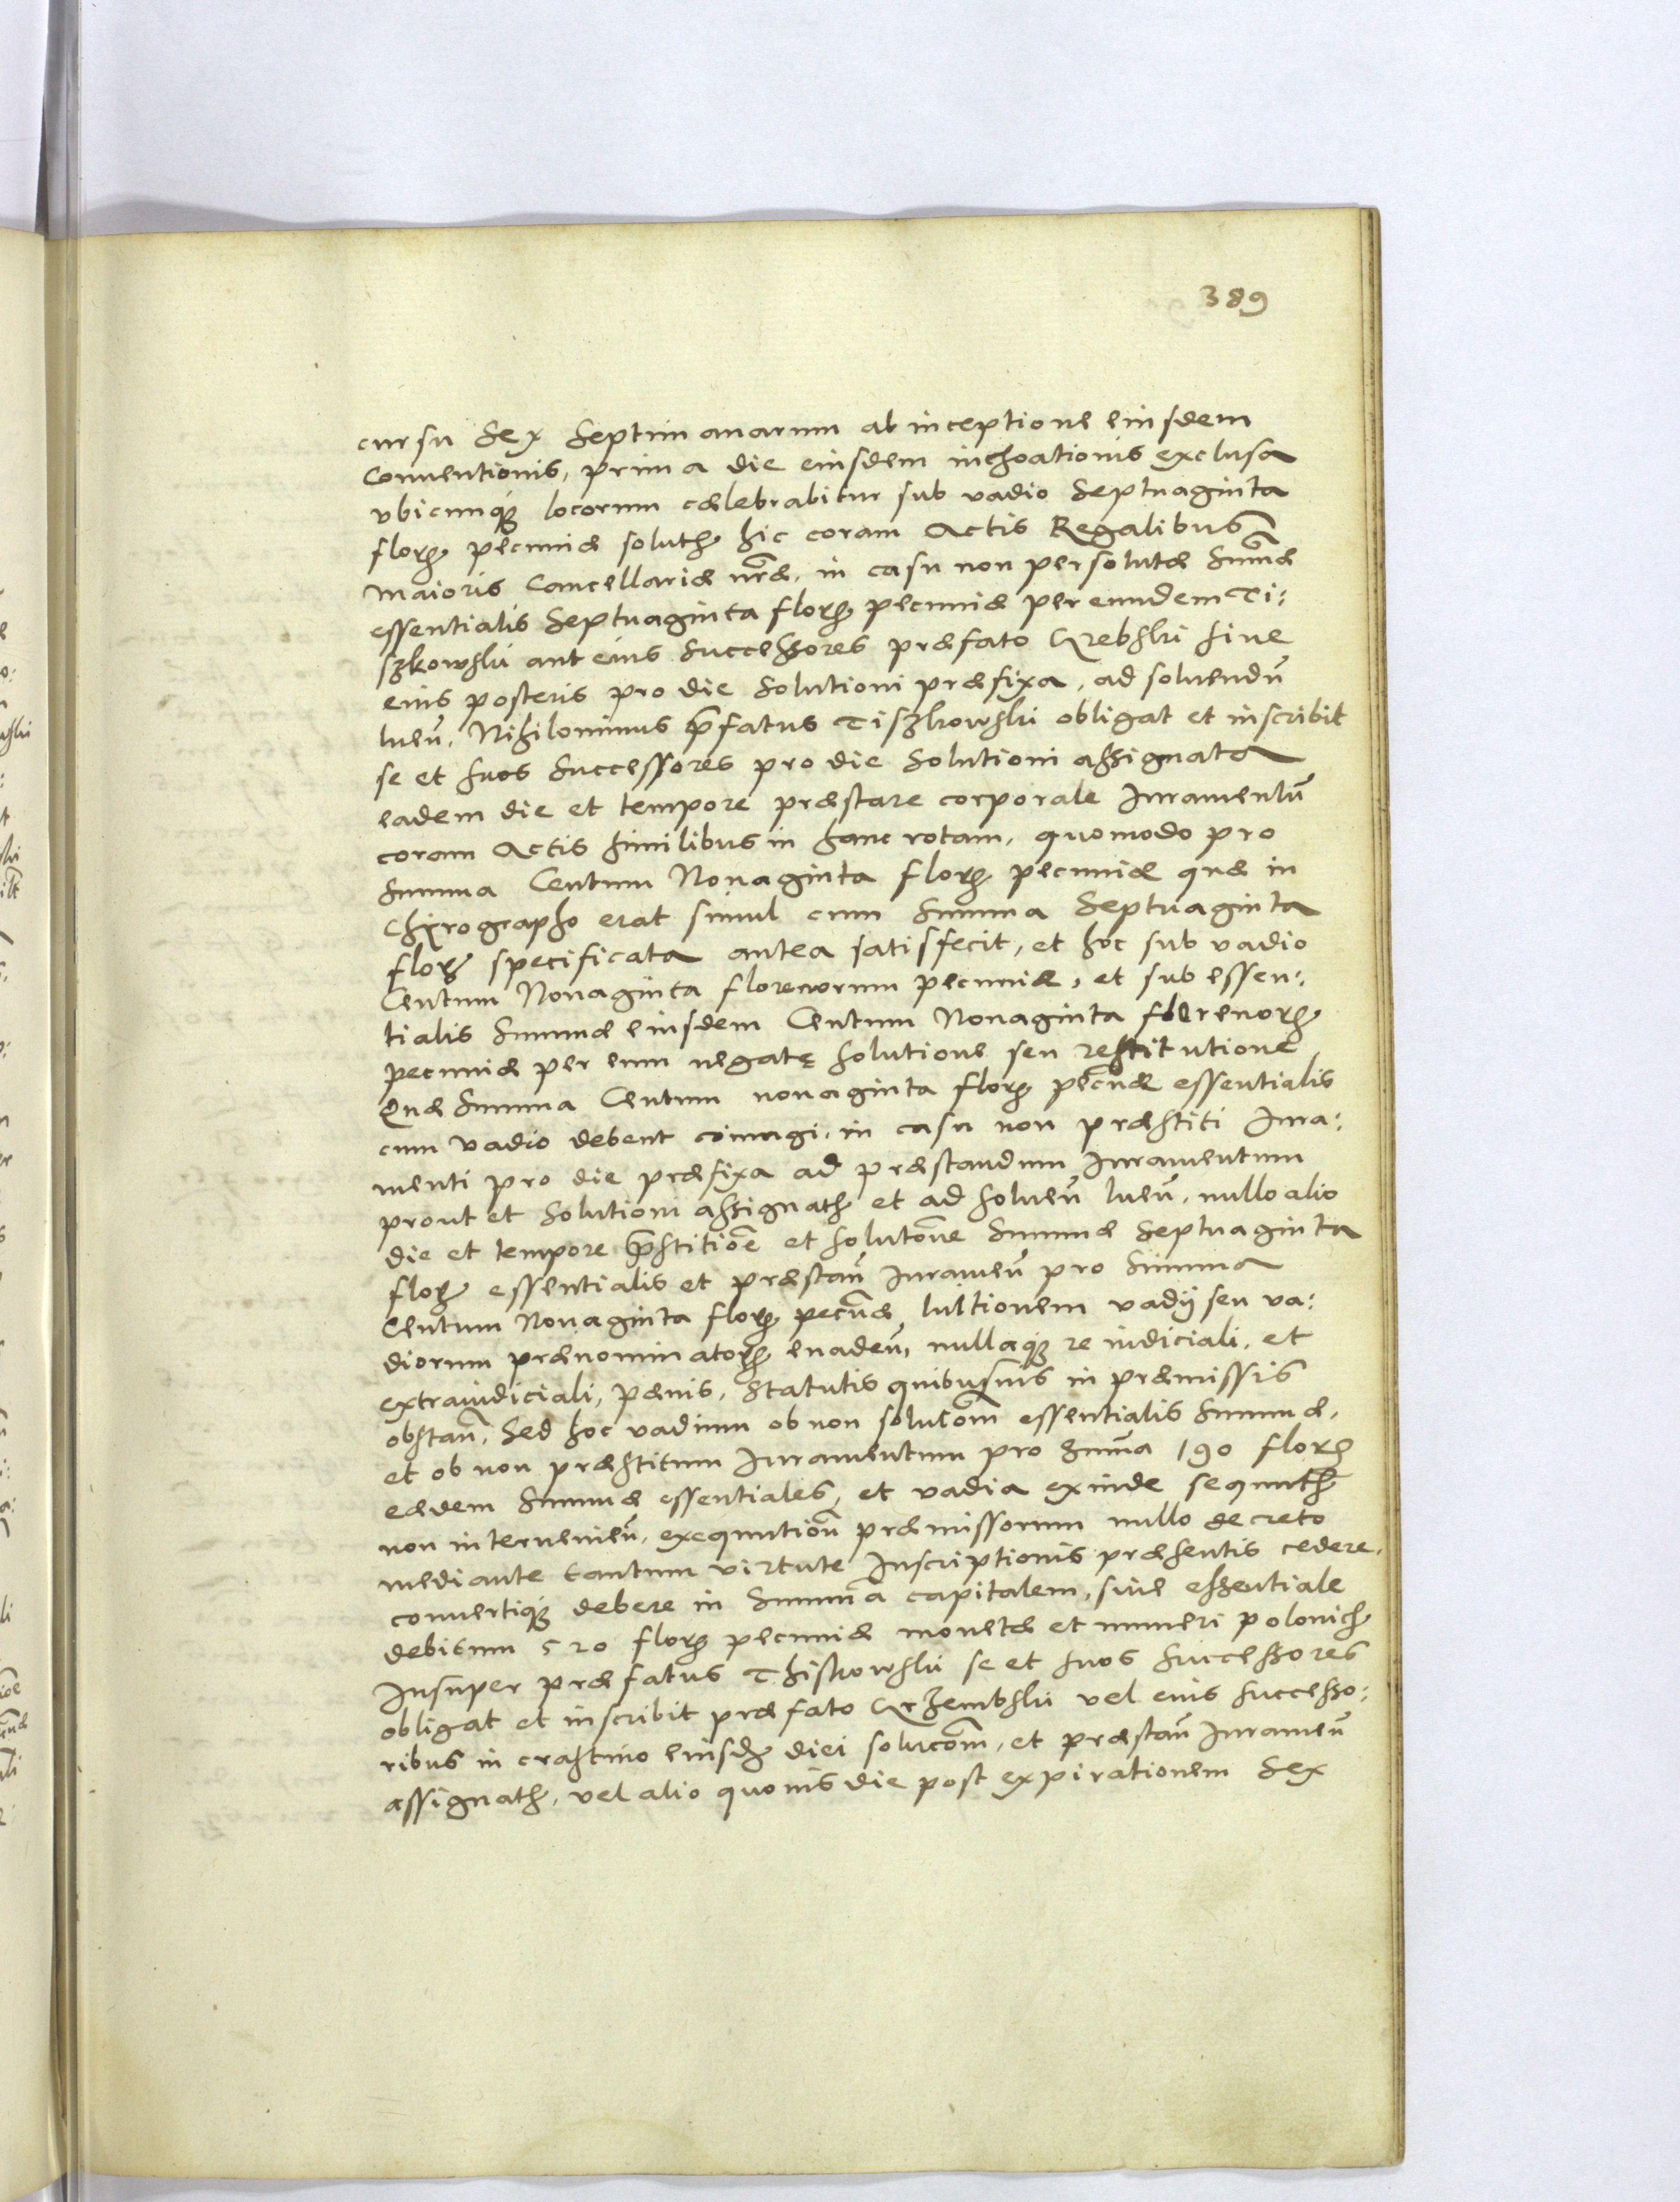 389
cursu Sex Septimanarum ab inceptione eiusdem
Conuentionis, prima die eiusdem inchoationis exclusa
vbicunq́ꝫ locorum cælebrabitur sub vadio Septuaginta
florꝝ pecuniæ soluthꝭ hic coram Actis Regalibus
Maioris Cancellariæ nr̃æ, in casu non persolutæ Sum̃æ
essentialis Septuaginta florꝝ pecuniæ per eundem Ti:
szkowski aut eius Successores præfato Krebski siue
eius posteris pro die Solutioni præfixa, ad soluendũ
lueñ. Nihilominus p̃fatus Tiszkowski obligat et inscribit
se et suos Successores pro die Solutioni assignata
eadem die et tempore præstare corporale Iuramentũ
coram Actis similibus in hanc rotam, quomodo pro
Summa Centum Nonaginta florꝝ pecuniæ quæ in
Chirographo erat simul cum Summa Septuaginta
florꝝ specificata antea satisfecit, et hoc sub vadio
Centum Nonaginta florenorum pecuniæ, et sub essen:
tialis Summæ eiusdem Centum Nonaginta florenorꝝ
pecuniæ per eum negatę solutione seu restitutione
Quæ Summa Centum nonaginta florꝝ pecũæ essentialis
cum vadio debent coniungi, in casu non præstiti Iura:
menti pro die præfixa ad præstandum Iuramentum
prout et Solutioni assignathꝭ et ad solueñ lueñ, nullo alio
die et tempore p̃stitiõe et solutõne Summæ Septuaginta
florꝝ essentialis et præstañ Iurameñ pro Summa
Centum Nonaginta florꝝ pecũæ, luitionem vadij seu va:
diorum prænominatorꝝ euadeñ, nullaq́ꝫ re iudiciali, et
extraiudiciali, pænis, Statutis quibusuis in præmissis
obstañ. Sed hoc vadium ob non solutõm essentialis Summæ,
et ob non præstitum Iuramentum pro Sum̃a 190 florꝝ
eædem Summæ essentiales, et vadia exinde sequuthꝭ
non interuenieñ, exequutioñ præmissorum nullo decreto
mediante tantum virtute Inscriptionis præsentis cedere,
conuertiq́ꝫ debere in Summã capitalem, siue essentiale
debitum 520 florꝝ pecuniæ monetæ et numeri polonichꝭ
Insuper præfatus Thiskowski se et suos Successores
obligat et inscribit præfato Krzembski vel eius successo:
ribus in crastino eiusdꝭ diei solucõm, et præstañ Iurameñ
assignathꝭ, vel alio quouis die post expirationem Sex